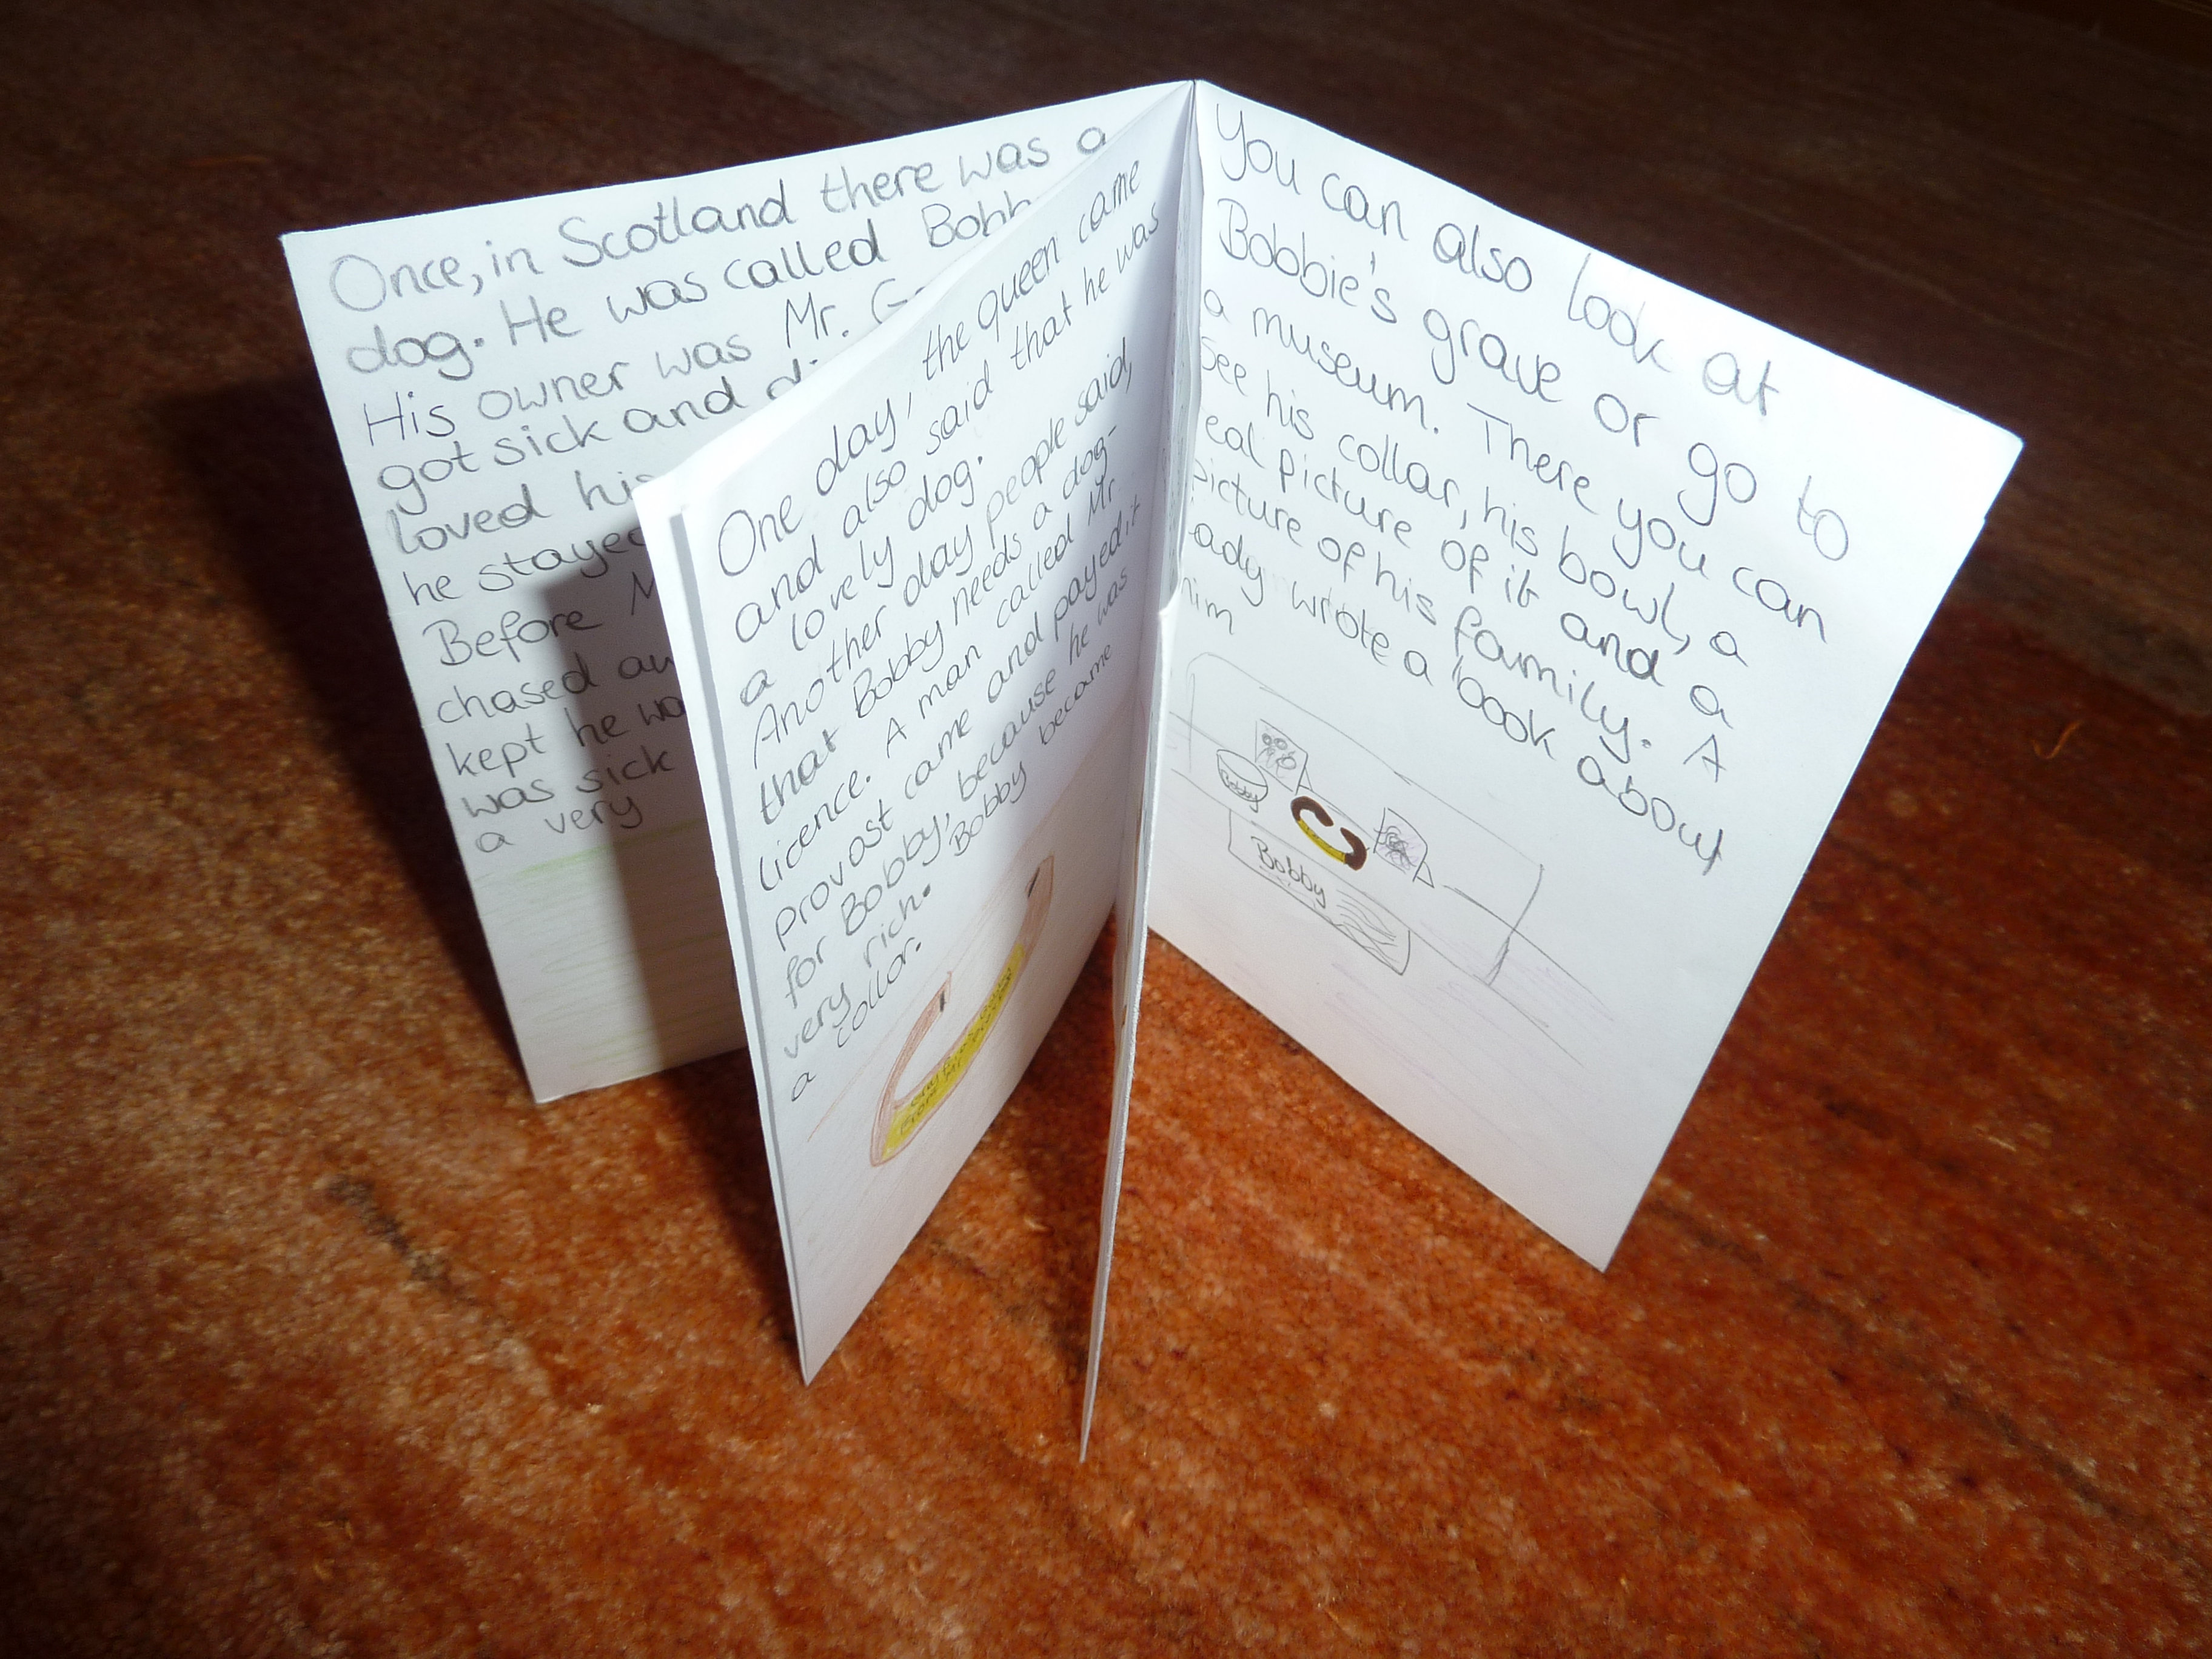 Once, in Scotland there was a
dog. He was called
His owner was Mr.
got sick and
loved his
he stayed
Before
chased
kept he
was sick
a very
One day, the queen came
and also said that he was
a lovely dog.
Another day people said,
that Bobby needs a dog-
licence. A man called Mr.
provost came and payed it
for Bobby, because he was
very rich. Bobby became
a collar.
You can also look at
Bobbie's grave or go to
a museum. There you can
see his collar, his bowl, a
picture of it and a
picture of his family. A
wrote a book about
him
Bobby
Bobby